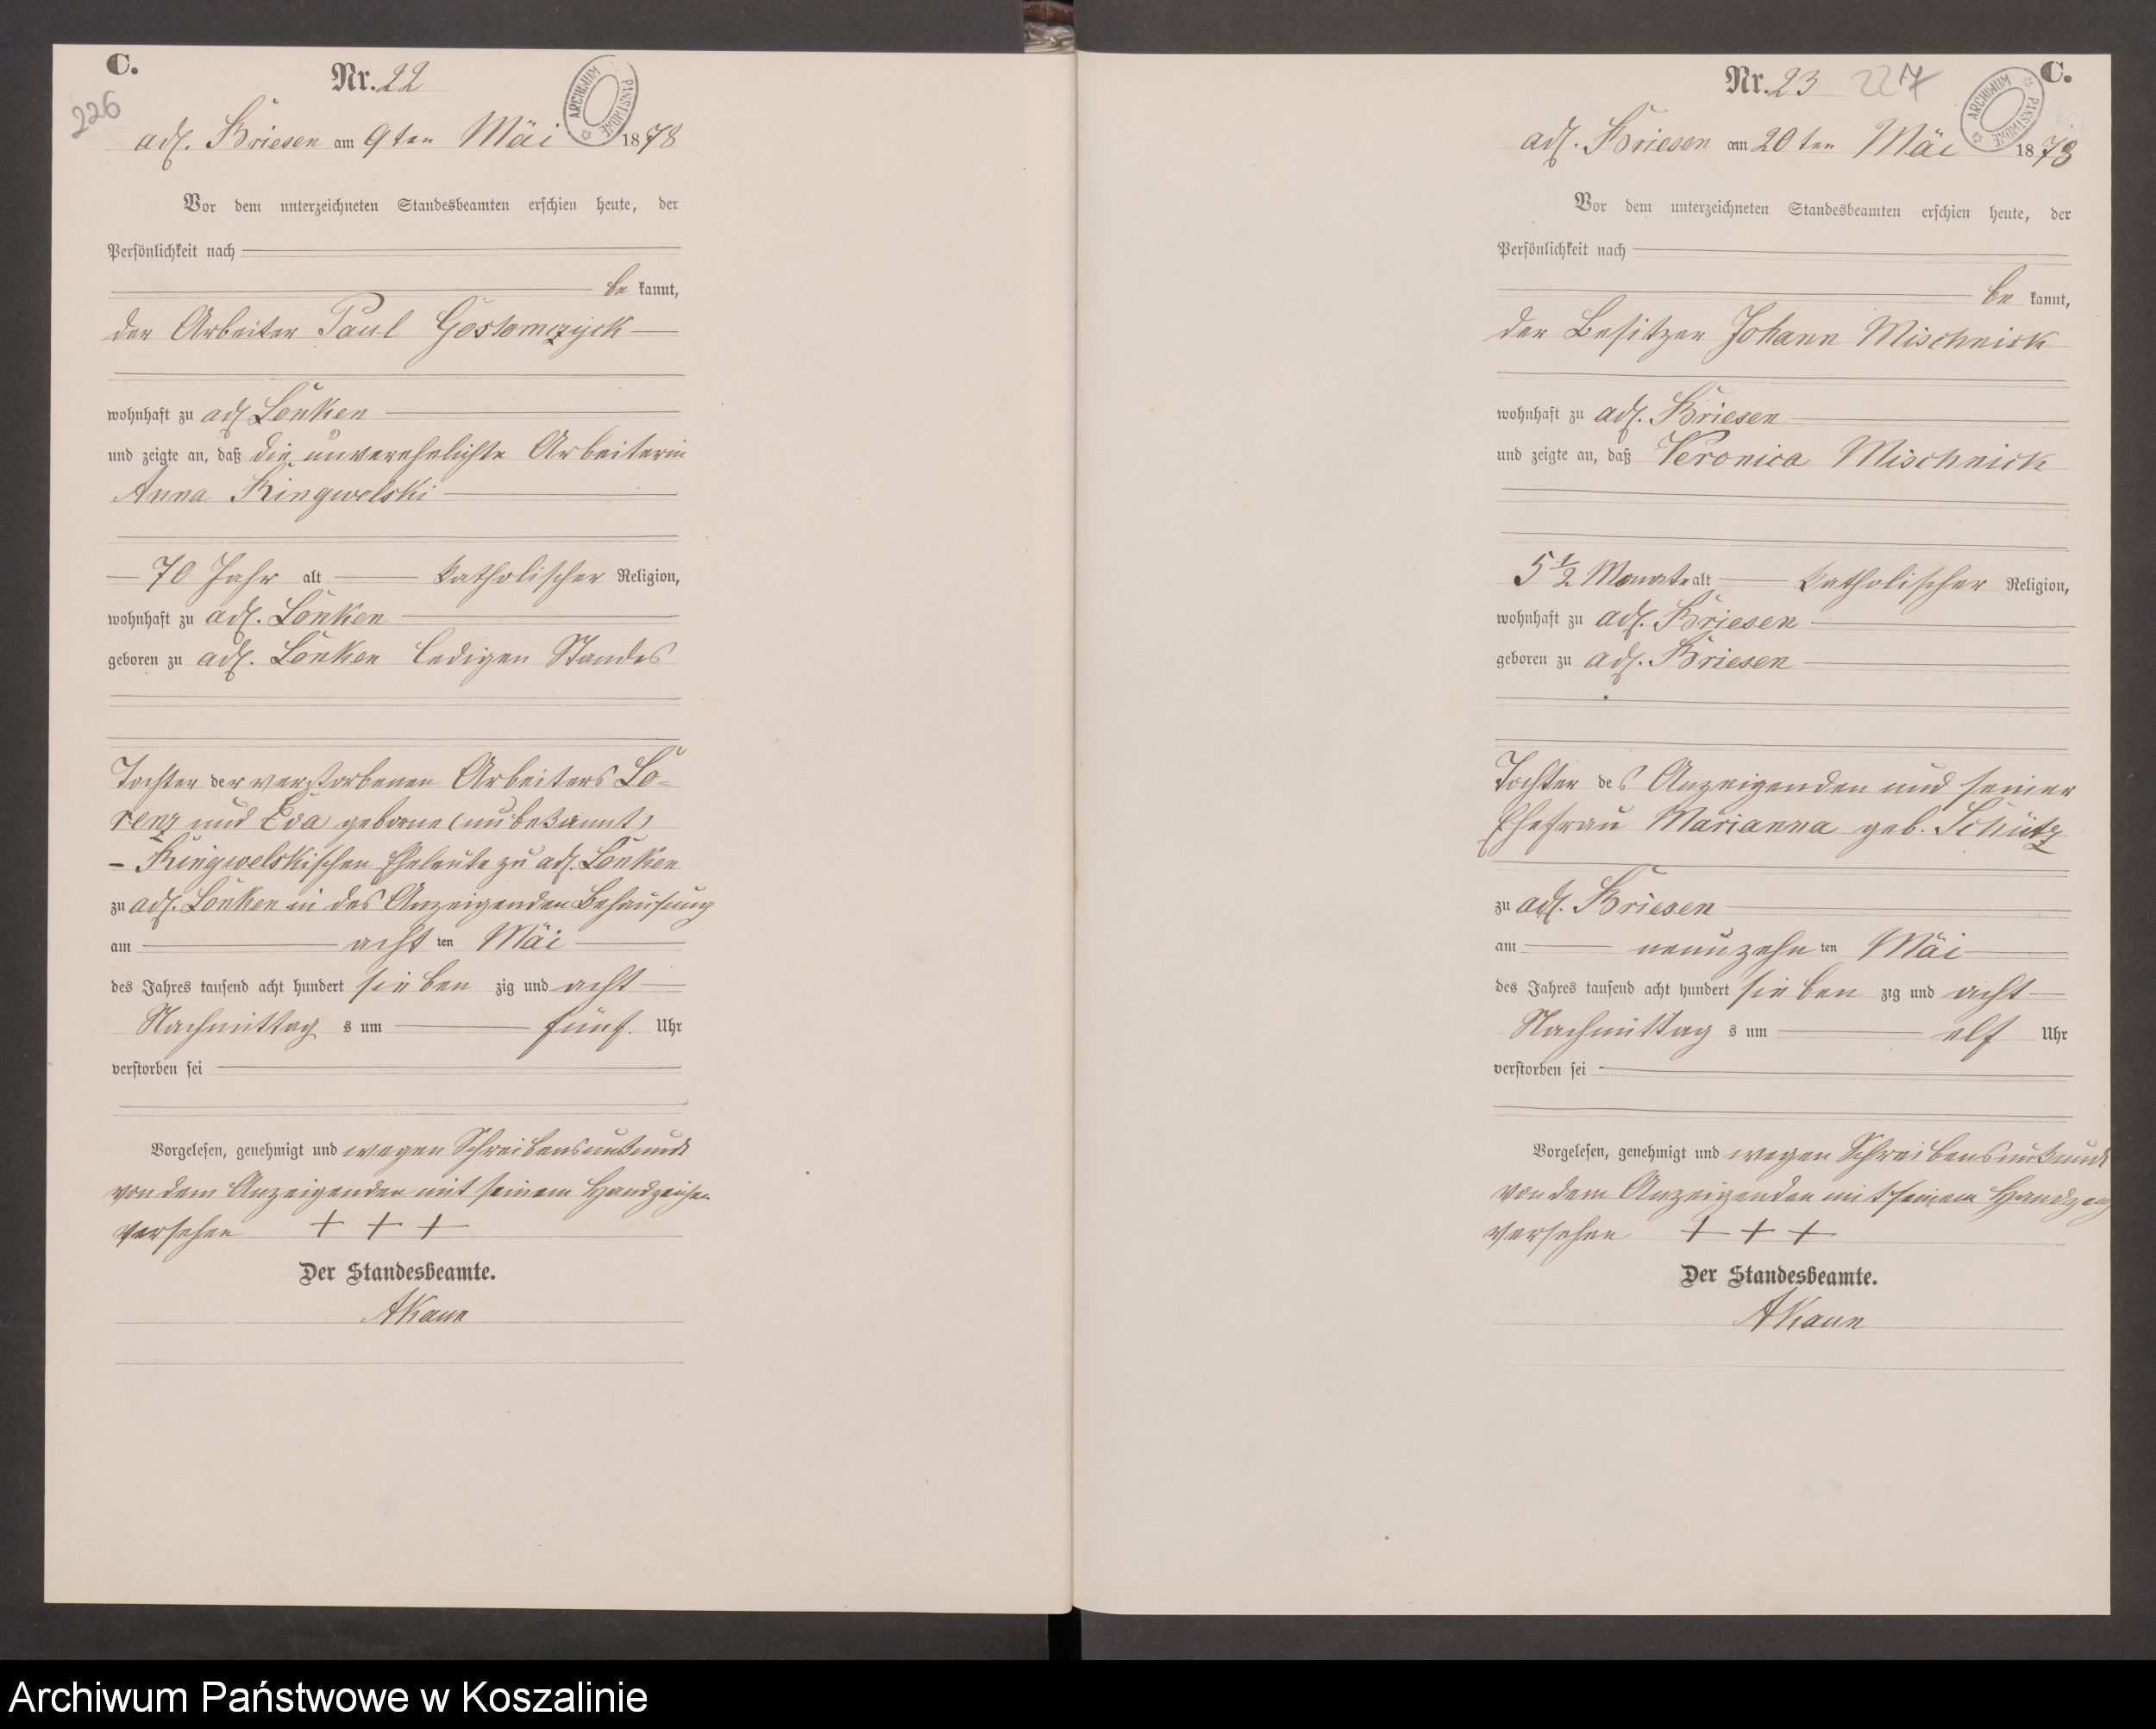 C.
Nr. 22
226
ARCHIWUM PAŃSTWOWE
adl. Briesen am 9ten Mai 1878
Vor dem unterzeichneten Standesbeamten erschien heute, der
Persönlichkeit nach
be kannt,
der Arbeiter Paul Gostomczyck
wohnhaft zu adl. Lonken
und zeigte an, daß die unverehelichte Arbeiterin
Anna Kingwelski
70 Jahr alt katholischer Religion,
wohnhaft zu adl. Lonken
geboren zu adl. Lonken ledigen Standes
Tochter der verstorbenen Arbeiters Lo-
renz und Eva geborne (unbekannt)
- Kingwelskischen Eheleute zu adl. Lonken
zu adl. Lonken in des Anzeigenden Behausung
am acht ten Mai
des Jahres tausend acht hundert sieben zig und acht
Nachmittag s um fünf Uhr
verstorben sei
Vorgelesen, genehmigt und wegen Schreibensunkunde
von dem Anzeigenden mit seinem Handzeichen
versehen + + +
Der Standesbeamte.
AKaun
C.
Nr. 23
227
ARCHIWUM PAŃSTWOWE
adl. Briesen am 20ten Mai 1878
Vor dem unterzeichneten Standesbeamten erschien heute, der
Persönlichkeit nach
be kannt,
der Besitzer Johann Mischnick
wohnhaft zu adl. Briesen
und zeigte an, daß Veronica Mischnick
5 1/2 Monate alt katholischer Religion,
wohnhaft zu adl. Briesen
geboren zu adl. Briesen
Tochter des Anzeigenden und seiner
Ehefrau Marianna geb. Schütz
zu adl. Briesen
am neunzehn ten Mai
des Jahres tausend acht hundert sieben zig und acht
Nachmittag s um elf Uhr
verstorben sei
Vorgelesen, genehmigt und wegen Schreibensunkunde
von dem Anzeigenden mit seinem Handzeich
versehen + + +
Der Standesbeamte.
AKaun
Archiwum Państwowe w Koszalinie